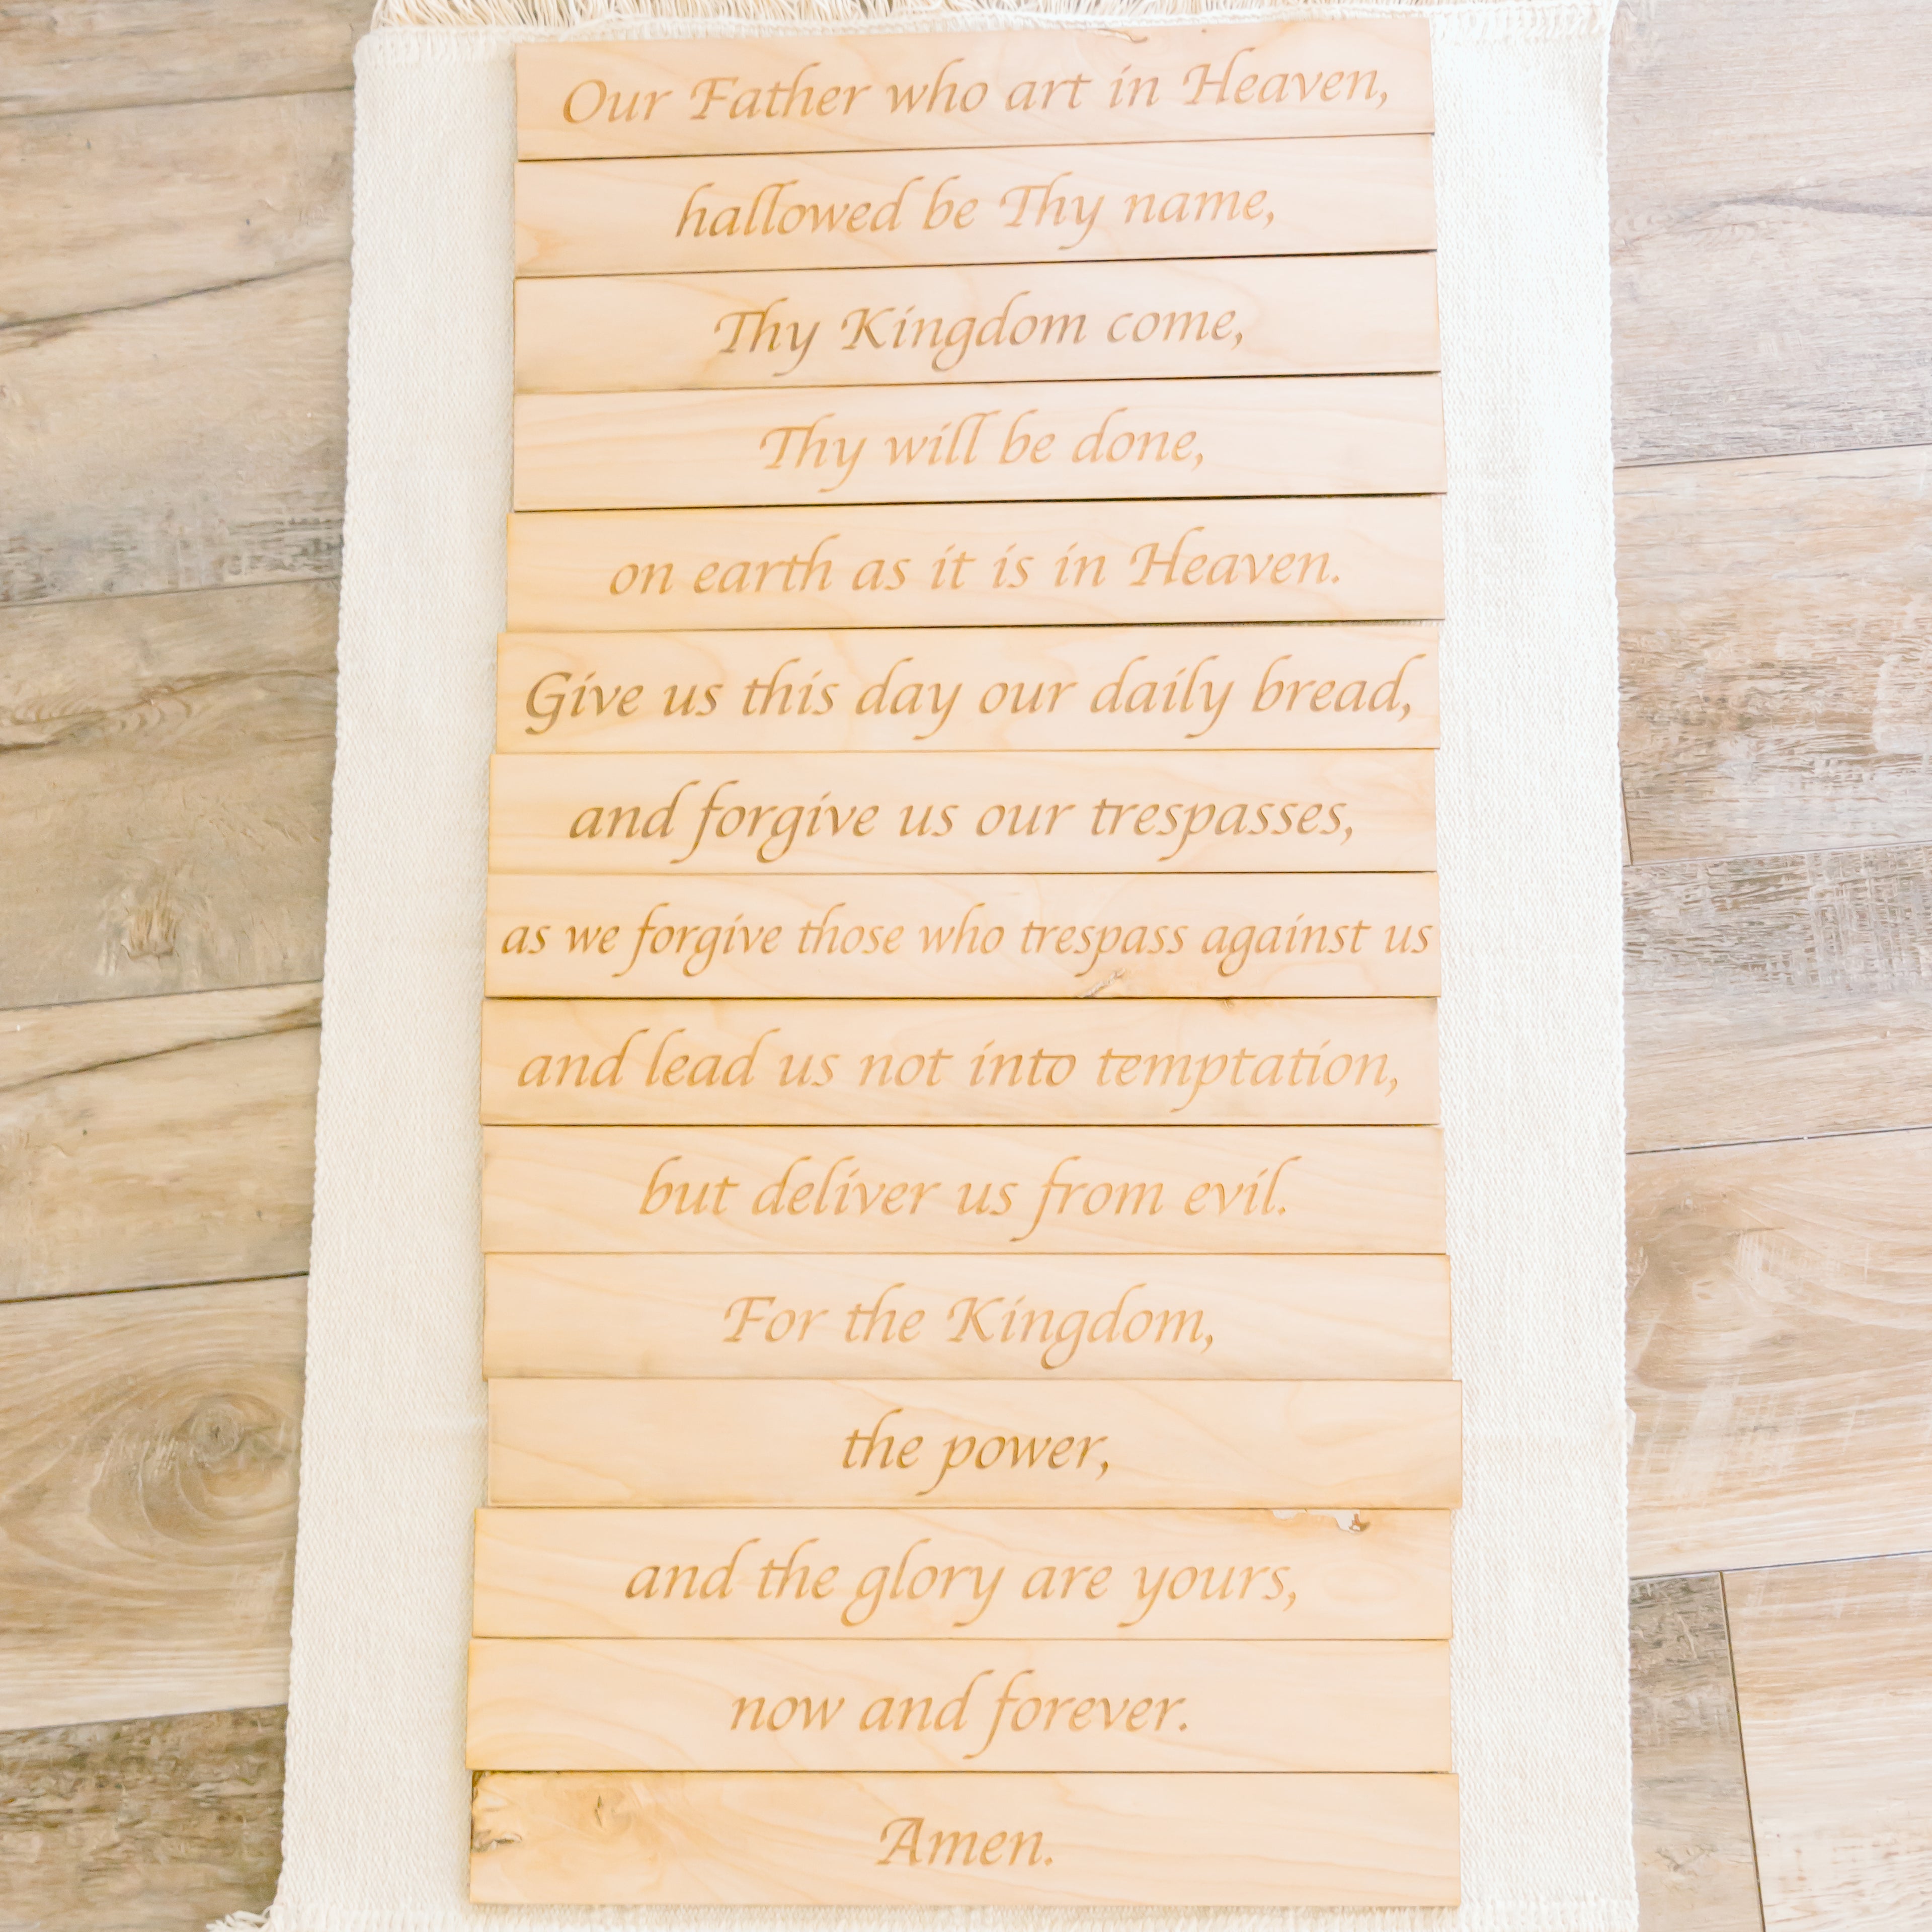 Our Father who art in Heaven,
hallowed be Thy name,
Thy Kingdom come,
Thy will be done,
on earth as it is in Heaven.
Give us this day our daily bread,
and forgive us our trespasses,
as we forgive those who trespass against us
and lead us not into temptation,
but deliver us from evil.
For the Kingdom,
the power,
and the glory are yours,
now and forever.
Amen.